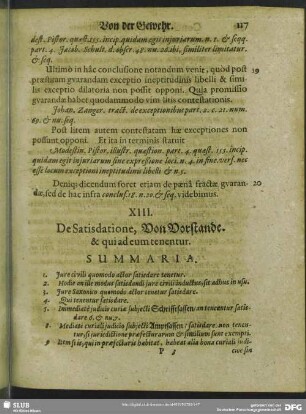 Von der Gewehr. 127
dest. Pistor. quæst. 155. incip. quidam egit injuriarum. n. 1. & seqq.
part. 4. Jacob. Schult. d. obser. 42. nu. ad. ibi, similiter limitatur.
& seq.
Ultimò in hâc conclusione notandum venit, quòd post 19
præstitam gvarandam exceptio ineptitudinis libelli & similis
exceptio dilatoria non possit opponi. Quia promissio
gvarandæ habet quodammodo vim litis contestationis.
Johan. Zanger. tract. de exceptionibus part. 2. c. 21. num.
69. & nu. seq.
Post litem autem contestatam hæ exceptiones non
possunt opponi. Et ita in terminis statuit
Modestin. Pistor. illustr. quæstion. part. 4. quæst. 155. incip.
quidam egit injuriarum sine expressione loci. n. 4. in fine vers. nec
esse locum exceptioni ineptitudinis libelli & n. 5.
Deniq; dicendum foret etiam de pœnâ fractæ gvarandæ, 20
sed de hac infra conclus. 15. n. 20. & seq. videbimus.
XIII.
De Satisdatione, Von Vorstande.
& qui ad eum tenentur.
SUMMARIA.
1. Jure civili quomodo actor satisdare tenetur.
2. Hodie an ille modus satisdandi jure civili inductus sit adhuc in usu.
3. Jure Saxonico quomodo actor tenetur satisdare.
4. Qui teneantur satisdare.
5. Immediatè judicio curiæ subjecti Schrifftsassen an teneantur satisdare
6. & nu. 7.
8. Mediatè curiali judicio subjecti Amptsassen / satisdare non tenentur
si jurisdictionem & præfecturam curialem habeant.
9. Item si is, qui in præfectura habitat, habeat alia bona curiali judi-
P 3
SLUB
Wir führen Wissen.
gefördert von der
Deutschen Forschungsgemeinschaft
DFG